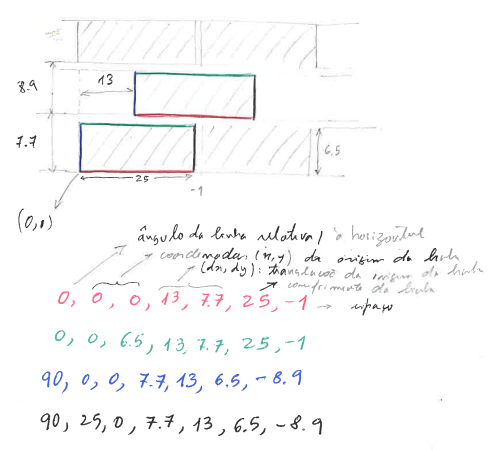 13
8.9
7.7
6.5
25
-1
(0,0)
ângulo da linha relativa / à horizontal
coordenadas (x,y) da origem da linha
(dx, dy): translação da origem da linha
comprimento da linha
0, 0, 0, 13, 7.7, 25, -1 → espaço
0, 0, 6.5, 13, 7.7, 25, -1
90, 0, 0, 7.7, 13, 6.5, -8.9
90, 25, 0, 7.7, 13, 6.5, -8.9